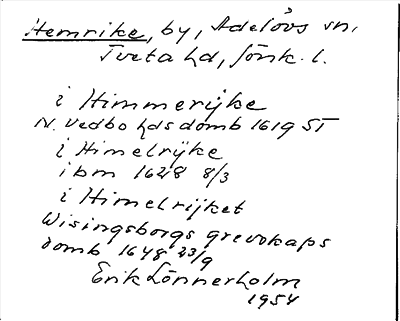 Hemrike, by, Adelövs sn,
Tveta hd, Jönk. l.
i Himmerijke
N. Vedbo hds domb 1619 ST
i Himelrijke
ibm 1628 8/3
i Himelrijket
Wisingsborgs grevskaps
domb 1648 23/9
Erik Lönnerholm
1954